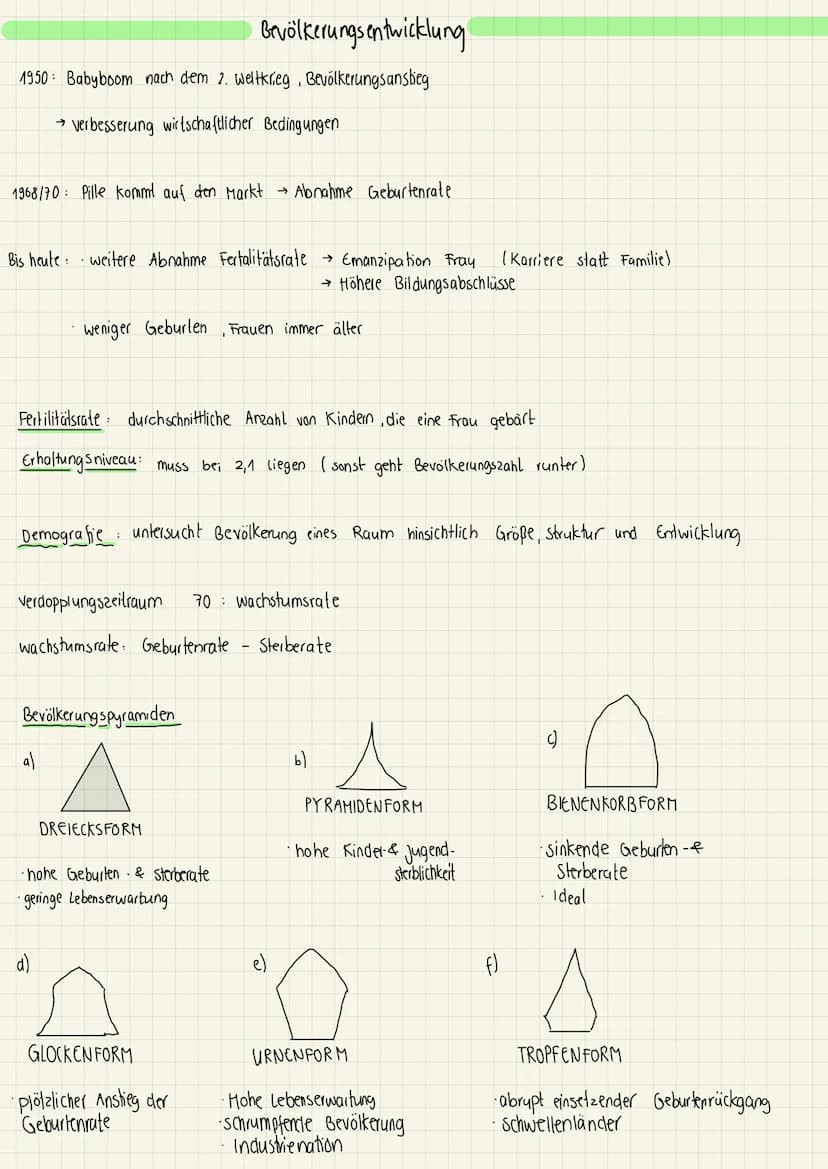 Bevölkerungsentwicklung
1950: Babyboom nach dem 2. Weltkrieg, Bevölkerungsanstieg
→ Verbesserung wirtschaftlicher Bedingungen
1968/70: Pille kommt auf den Markt → Abnahme Geburtenrate
Bis heute: · weitere Abnahme Fertalitätsrate → Emanzipation Frau (Karriere statt Familie)
→ Höhere Bildungsabschlüsse
· weniger Geburten, Frauen immer älter
Fertilitätsrate: durchschnittliche Anzahl von Kindern, die eine Frau gebärt
Erhaltungsniveau: muss bei 2,1 liegen (sonst geht Bevölkerungszahl runter)
Demografie: untersucht Bevölkerung eines Raum hinsichtlich Größe, Struktur und Entwicklung
Verdopplungszeitraum 70 : Wachstumsrate
Wachstumsrate: Geburtenrate - Sterberate
Bevölkerungspyramiden
a)
DREIECKSFORM
· hohe Geburten · & Sterberate
· geringe Lebenserwartung
b)
PYRAMIDENFORM
· hohe Kinder-& Jugend-
sterblichkeit
c)
BIENENKORBFORM
· sinkende Geburten -&
Sterberate
· Ideal
d)
GLOCKENFORM
· plötzlicher Anstieg der
Geburtenrate
e)
URNENFORM
· Hohe Lebenserwartung
· schrumpfende Bevölkerung
· Industrienation
f)
TROPFENFORM
· abrupt einsetzender Geburtenrückgang
· Schwellenländer